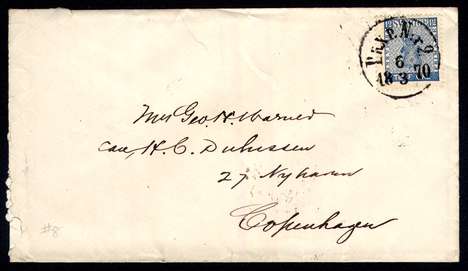 PKXP. Nr 2
6
18 3 70
Mrs Geo. H. Warner
care H. C. Duhrssen
27 Nyhavn
Copenhagen
#8